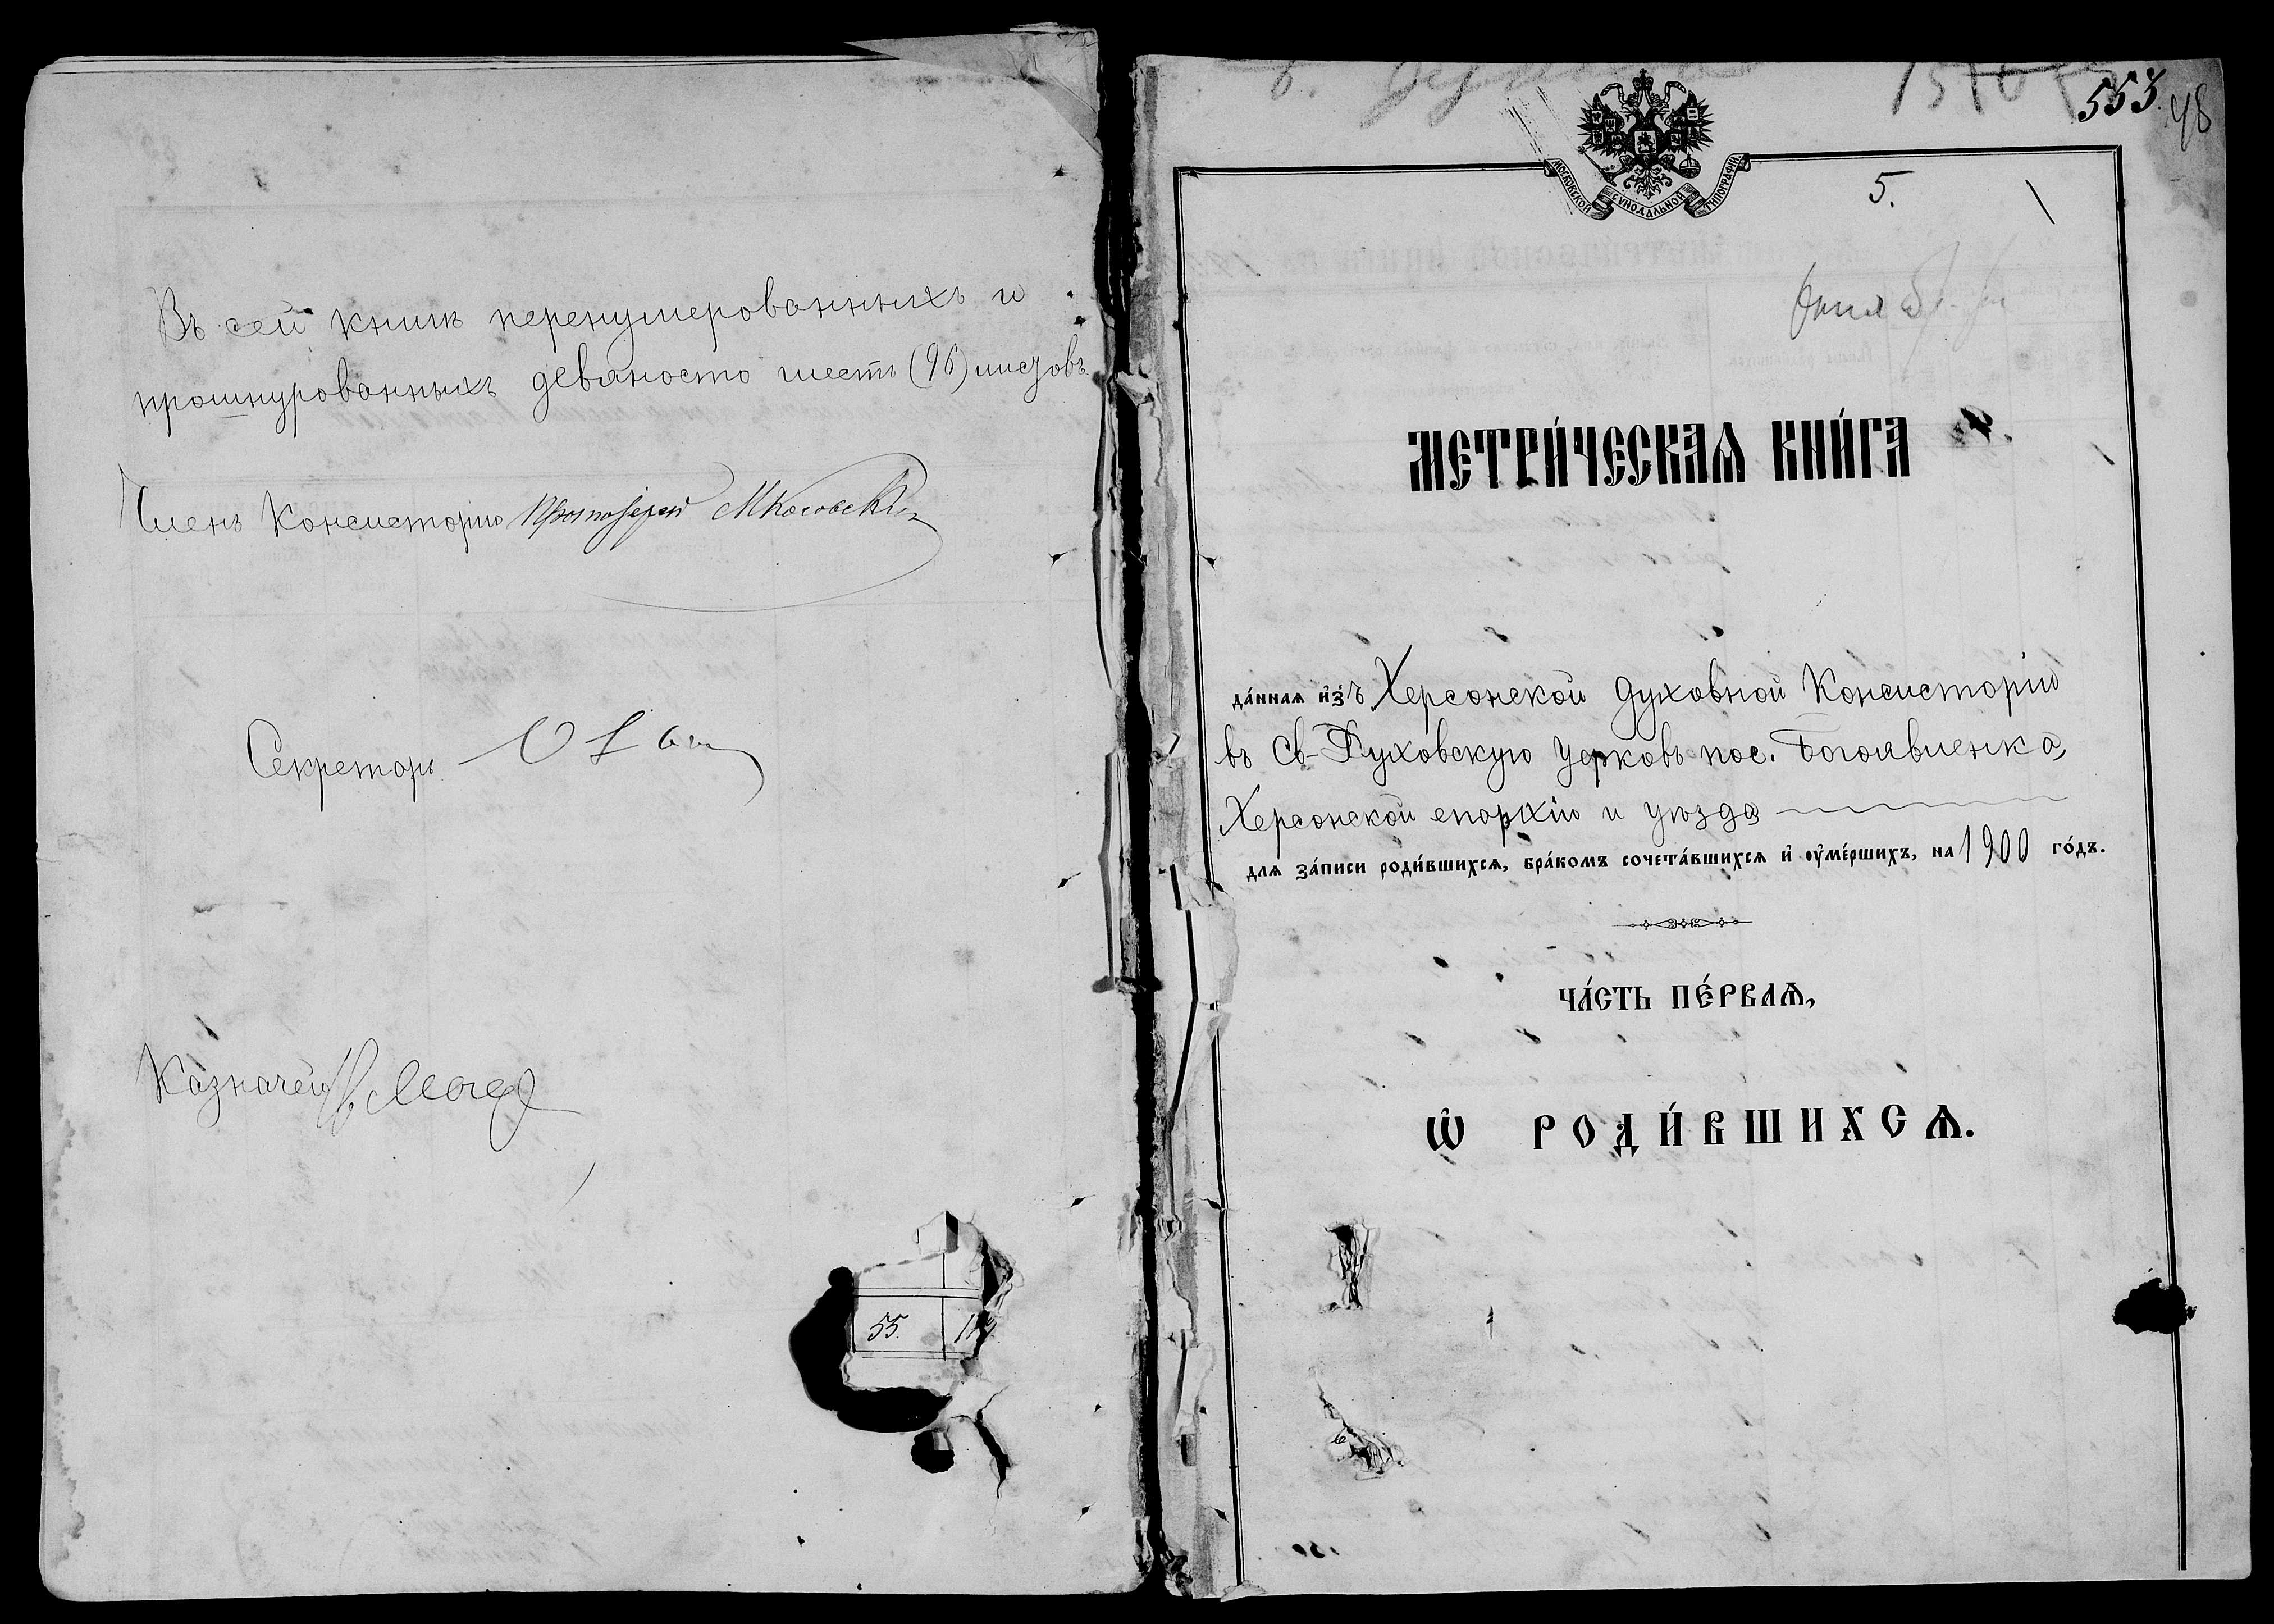 Въ сей книгѣ перенумерованныхъ и
прошнурованныхъ девяносто шесть (96) листовъ.
Членъ Консисторіи Протоіерей
Секретарь
Казначей
55.
553.
48
МОСКОВСКОЙ СѴНОДАЛЬНОЙ ТИПОГРАФІИ
5.
МЕТРИ́ЧЕСКАѦ КНИ́ГА
да́ннаѧ и҆з̾ Херсонской Духовной Консисторіи
въ Св-Духовскую церковь пос. Богоявленка,
Херсонской епархіи и уѣзда
длѧ за́писи роди́вшихсѧ, бра́комъ сочета́вшихсѧ и҆ ѹ҆ме́ршихъ, на 1900 го́дъ.
ЧА́СТЬ ПЕ́РВАѦ,
Ѽ РОДИ́ВШИХСѦ.